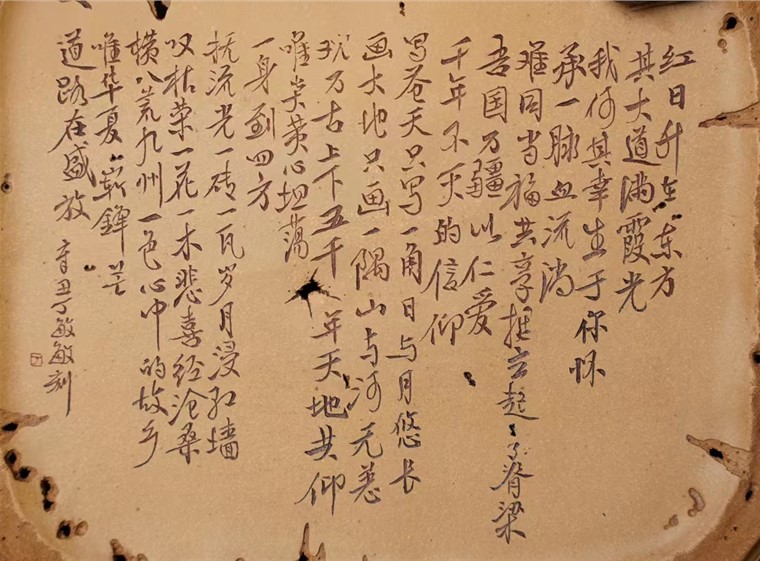 红日升在东方
其大道满霞光
我何其幸生于你怀
承一脉血流淌
难同当福共享挺立起了脊梁
吾国万疆以仁爱
千年不灭的信仰
写苍天只写一角日与月悠长
画大地只画一隅山与河无恙
观万古上下五千年天地共仰
唯炎黄心坦荡
一身到四方
抚流光一砖一瓦岁月浸红墙
叹枯荣一花一木悲喜经沧桑
横八荒九州一色心中的故乡
唯华夏崭锋芒
道路在盛放
辛丑丁敏敏刻